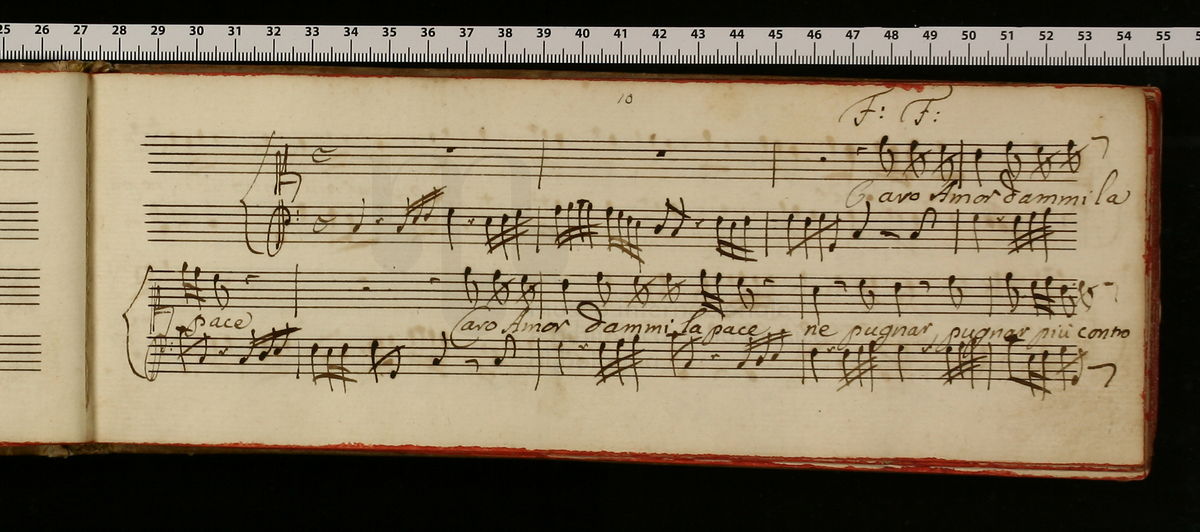 25 26 27 28 29 30 31 32 33 34 35 36 37 38 39 40 41 42 43 44 45 46 47 48 49 50 51 52 53 54 55
10
F: F:
Caro Amor dammi la
pace Caro Amor dammi la pace ne pugnar, pugnar più contro